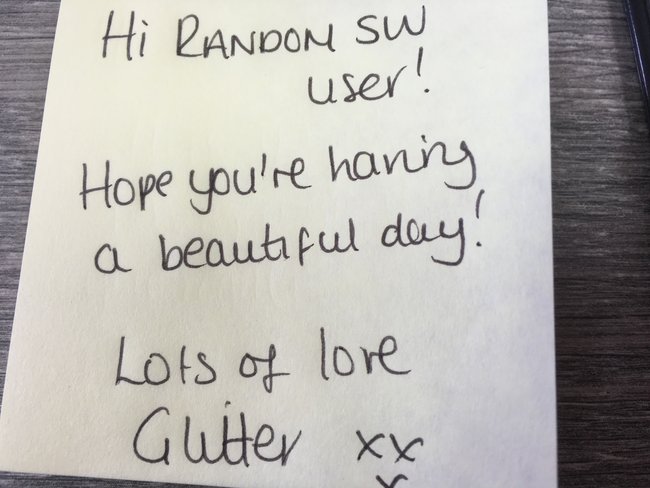 Hi RANDOM SW
user!
Hope you're having
a beautiful day!
Lots of love
Glitter xx
x